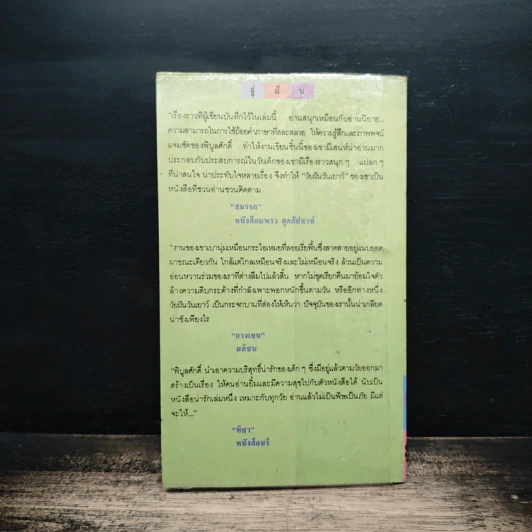 สู่ ฝั น
"เรื่องราวที่ผู้เขียนบันทึกไว้ในเล่มนี้ อ่านสนุกเหมือนกับอ่านนิยาย...
ความสามารถในการใช้ถ้อยคำภาษาที่สละสลวย ให้ความรู้สึกและภาพพจน์
แจ่มชัดของพิบูลศักดิ์ ทำให้งานเขียนชิ้นนี้ของเขามีเสน่ห์น่าอ่านมาก
ประกอบกับประสบการณ์ในวัยเด็กของเขามีเรื่องราวสนุก ๆ แปลก ๆ
ที่น่าสนใจ น่าประทับใจหลายเรื่อง จึงทำให้ "วัยฝันวันเยาว์" ของเขาเป็น
หนังสือที่ชวนอ่านชวนติดตาม
"สมรรถ"
หนังสือแพรว สุดสัปดาห์
"งานของเขาเบานุ่มเหมือนกระไอเหมยที่ลอยเรี่ยพื้นซึ่งสาดสายอยู่แนบยอด
ผาขณะเดียวกัน ใกล้แต่ไกลเหมือนจริงและไม่เหมือนจริง ล้วนเป็นความ
อ่อนหวานร่วมของเราที่ต่างลืมไปแล้วสิ้น หากไม่ขุดเรียกคืนมาย้อมใจตัว
ล้างความดิบกระด้างที่กำลังเพาะพอกหนักขึ้นตามวัน หรืออีกทางหนึ่ง
วัยฝันวันเยาว์ เป็นกระจกบานที่ส่องให้เห็นว่า ปัจจุบันของเรานั้นน่าเกลียด
น่าชังเพียงไร
"ลางเขน"
มติชน
"พิบูลศักดิ์ นำเอาความบริสุทธิ์น่ารักของเด็ก ๆ ซึ่งมีอยู่แล้วตามวัยออกมา
สร้างเป็นเรื่อง ให้คนอ่านยิ้มและมีความสุขไปกับตัวหนังสือได้ นับเป็น
หนังสือน่ารักเล่มหนึ่ง เหมาะกับทุกวัย อ่านแล้วไม่เป็นพิษเป็นภัย มีแต่
จะให้..."
"พิชา"
หนังสือนรี